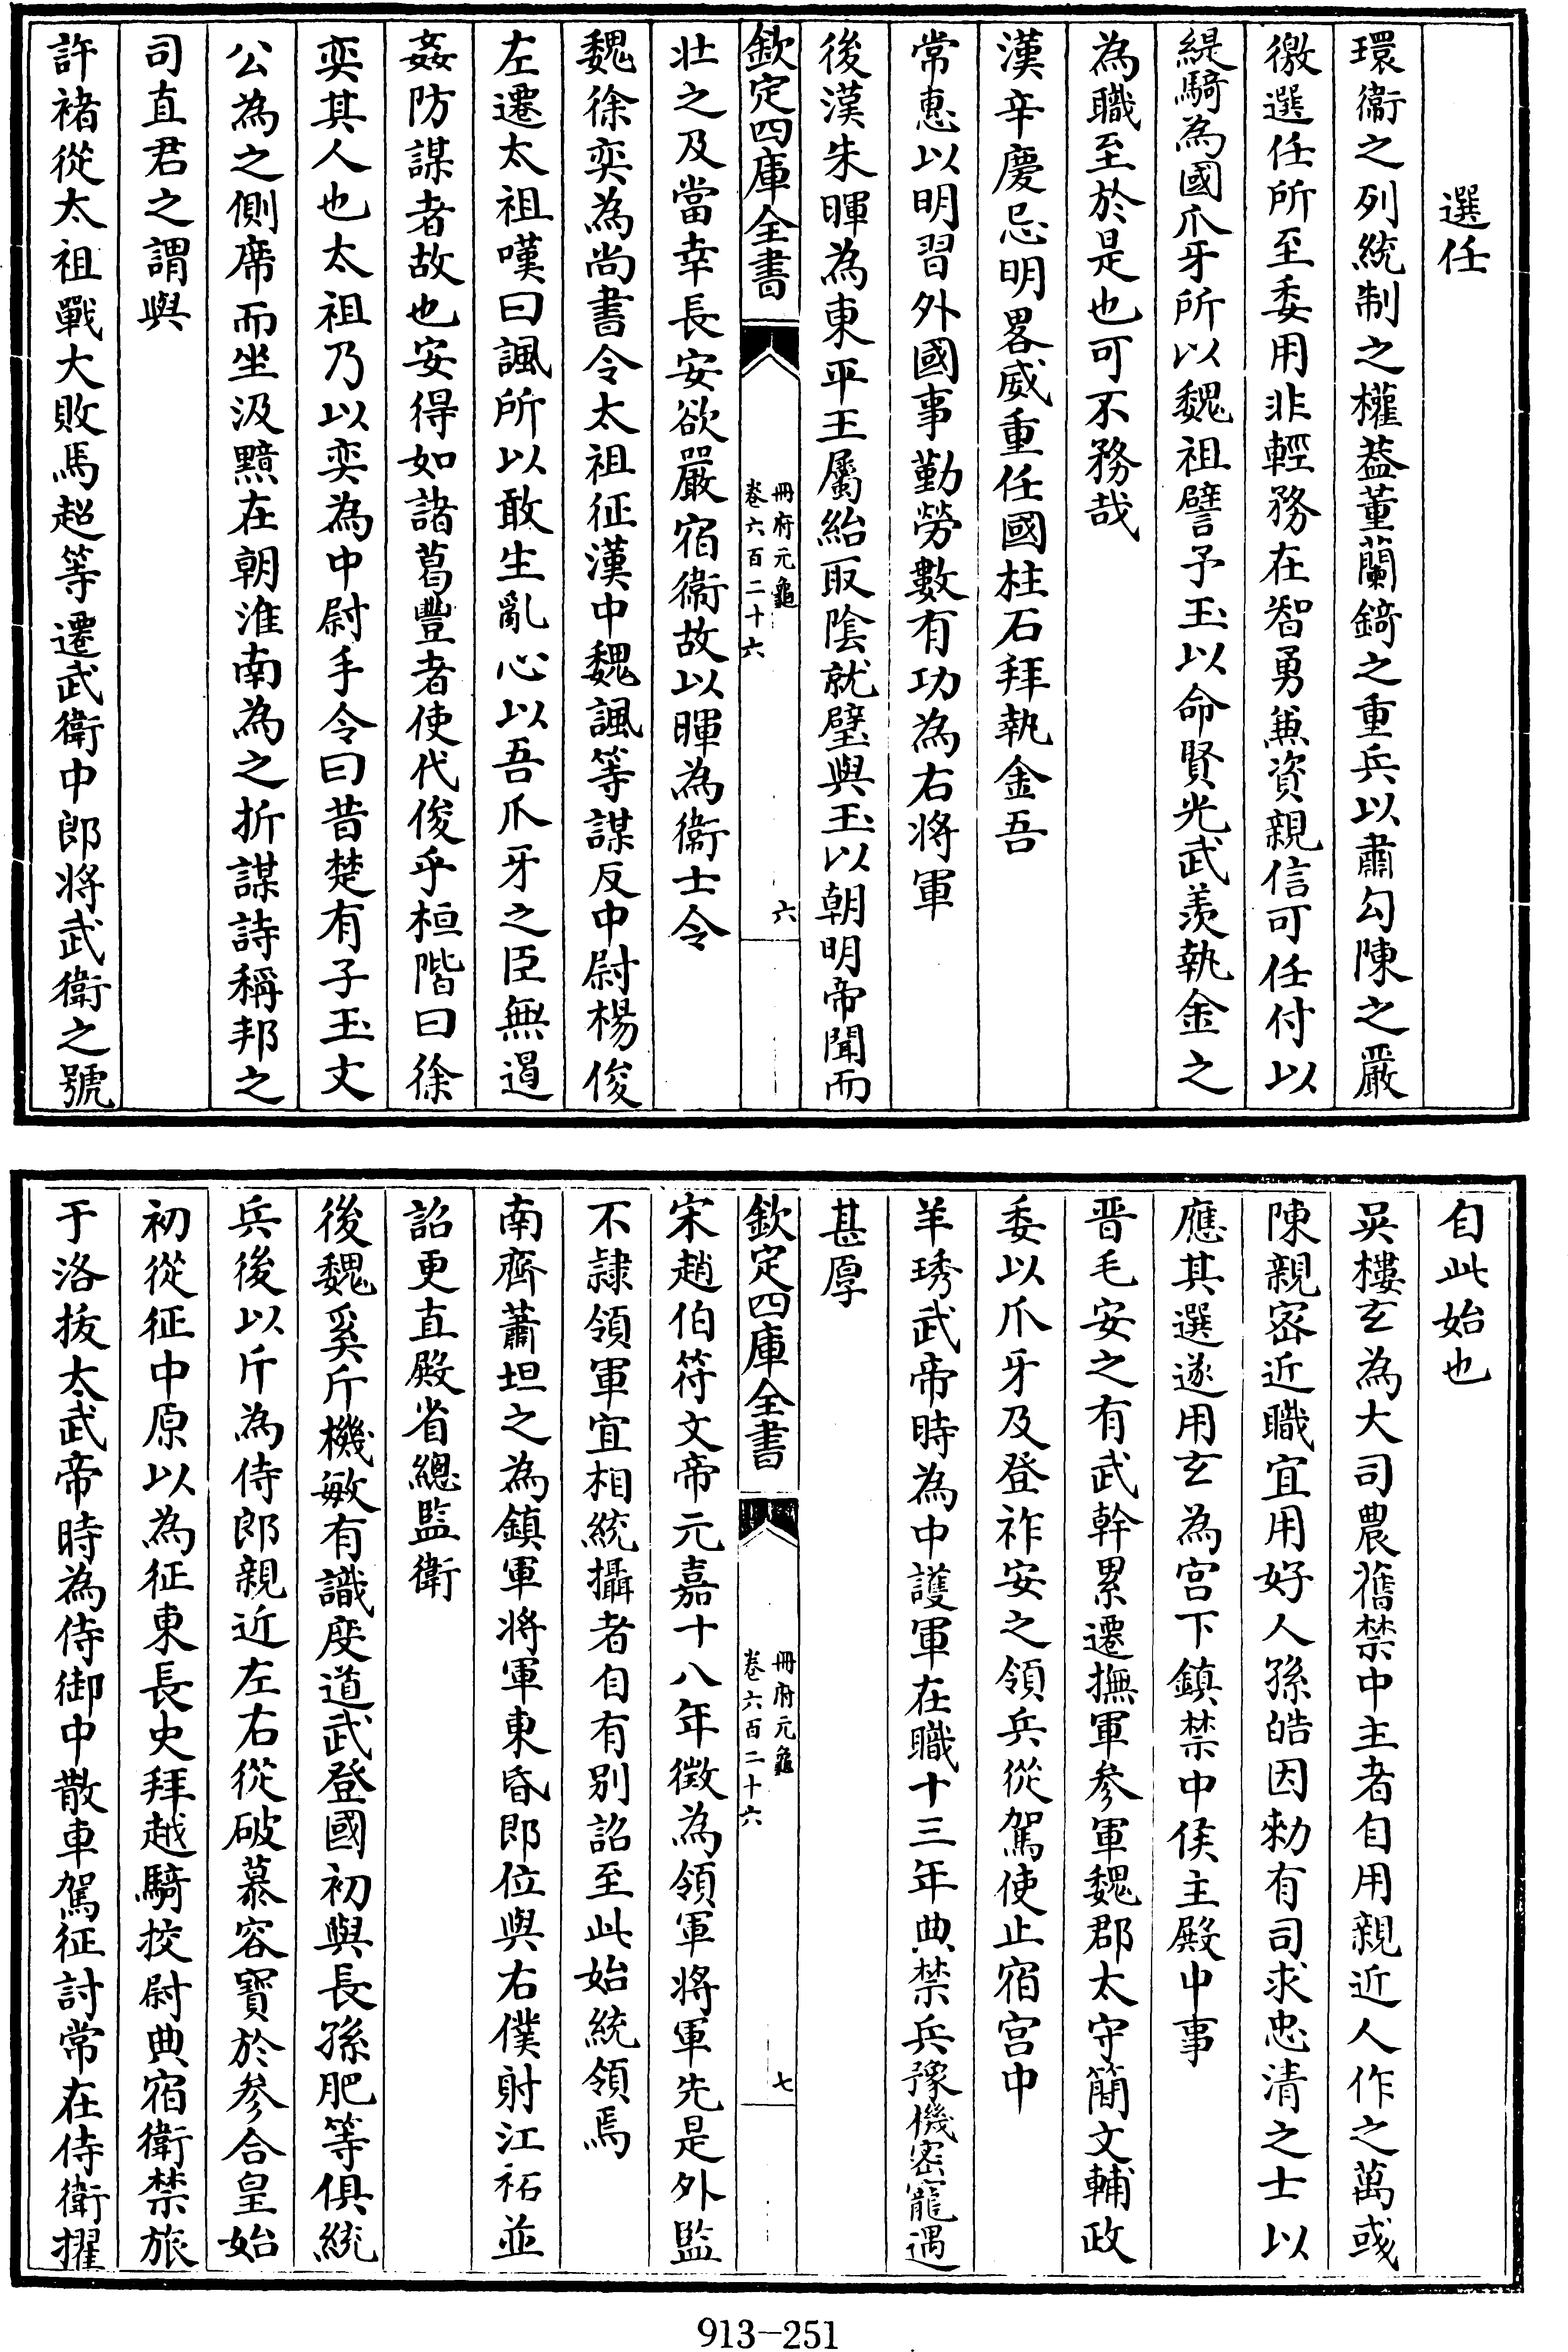 選任
環衞之列統制之權葢董蘭錡之重兵以肅勾陳之嚴
徼選任所至委用非輕務在智勇兼資親信可任付以
緹騎為國爪牙所以魏祖譬予玉以命賢光武羨執金之
為職至於是也可不務哉
漢辛慶忌明畧威重任國柱石拜執金吾
常惠以明習外國事勤勞數有功為右將軍
後漢朱暉為東平王屬紿取陰就璧與玉以朝明帝聞而
欽定四庫全書
冊府元龜
卷六百二十六
六
壯之及當幸長安欲嚴宿衞故以暉為衞士令
魏徐奕為尚書令太祖征漢中魏諷等謀反中尉楊俊
左遷太祖嘆曰諷所以敢生亂心以吾爪牙之臣無遏
姦防謀者故也安得如諸葛豐者使代俊乎桓階曰徐
奕其人也太祖乃以奕為中尉手令曰昔楚有子玉文
公為之側席而坐汲黯在朝淮南為之折謀詩稱邦之
司直君之謂與
許褚從太祖戰大敗馬超等遷武衛中郎將武衛之號
自此始也
吳樓玄為大司農舊禁中主者自用親近人作之萬彧
陳親密近職宜用好人孫皓因勑有司求忠清之士以
應其選遂用玄為宫下鎮禁中侯主殿中事
晋毛安之有武幹累遷撫軍參軍魏郡太守簡文輔政
委以爪牙及登祚安之領兵從駕使止宿宫中
羊琇武帝時為中護軍在職十三年典禁兵豫機密寵遇
甚厚
欽定四庫全書
冊府元龜
卷六百二十六
七
宋趙伯符文帝元嘉十八年徵為領軍將軍先是外監
不隸領軍宜相統攝者自有别詔至此始統領焉
南齊蕭坦之為鎮軍將軍東昏即位與右僕射江祏並
詔更直殿省總監衛
後魏奚斤機敏有識度道武登國初與長孫肥等俱統
兵後以斤為侍郎親近左右從破慕容寳於參合皇始
初從征中原以為征東長史拜越騎挍尉典宿衛禁旅
于洛拔太武帝時為侍御中散車駕征討常在侍衛擢
913—251